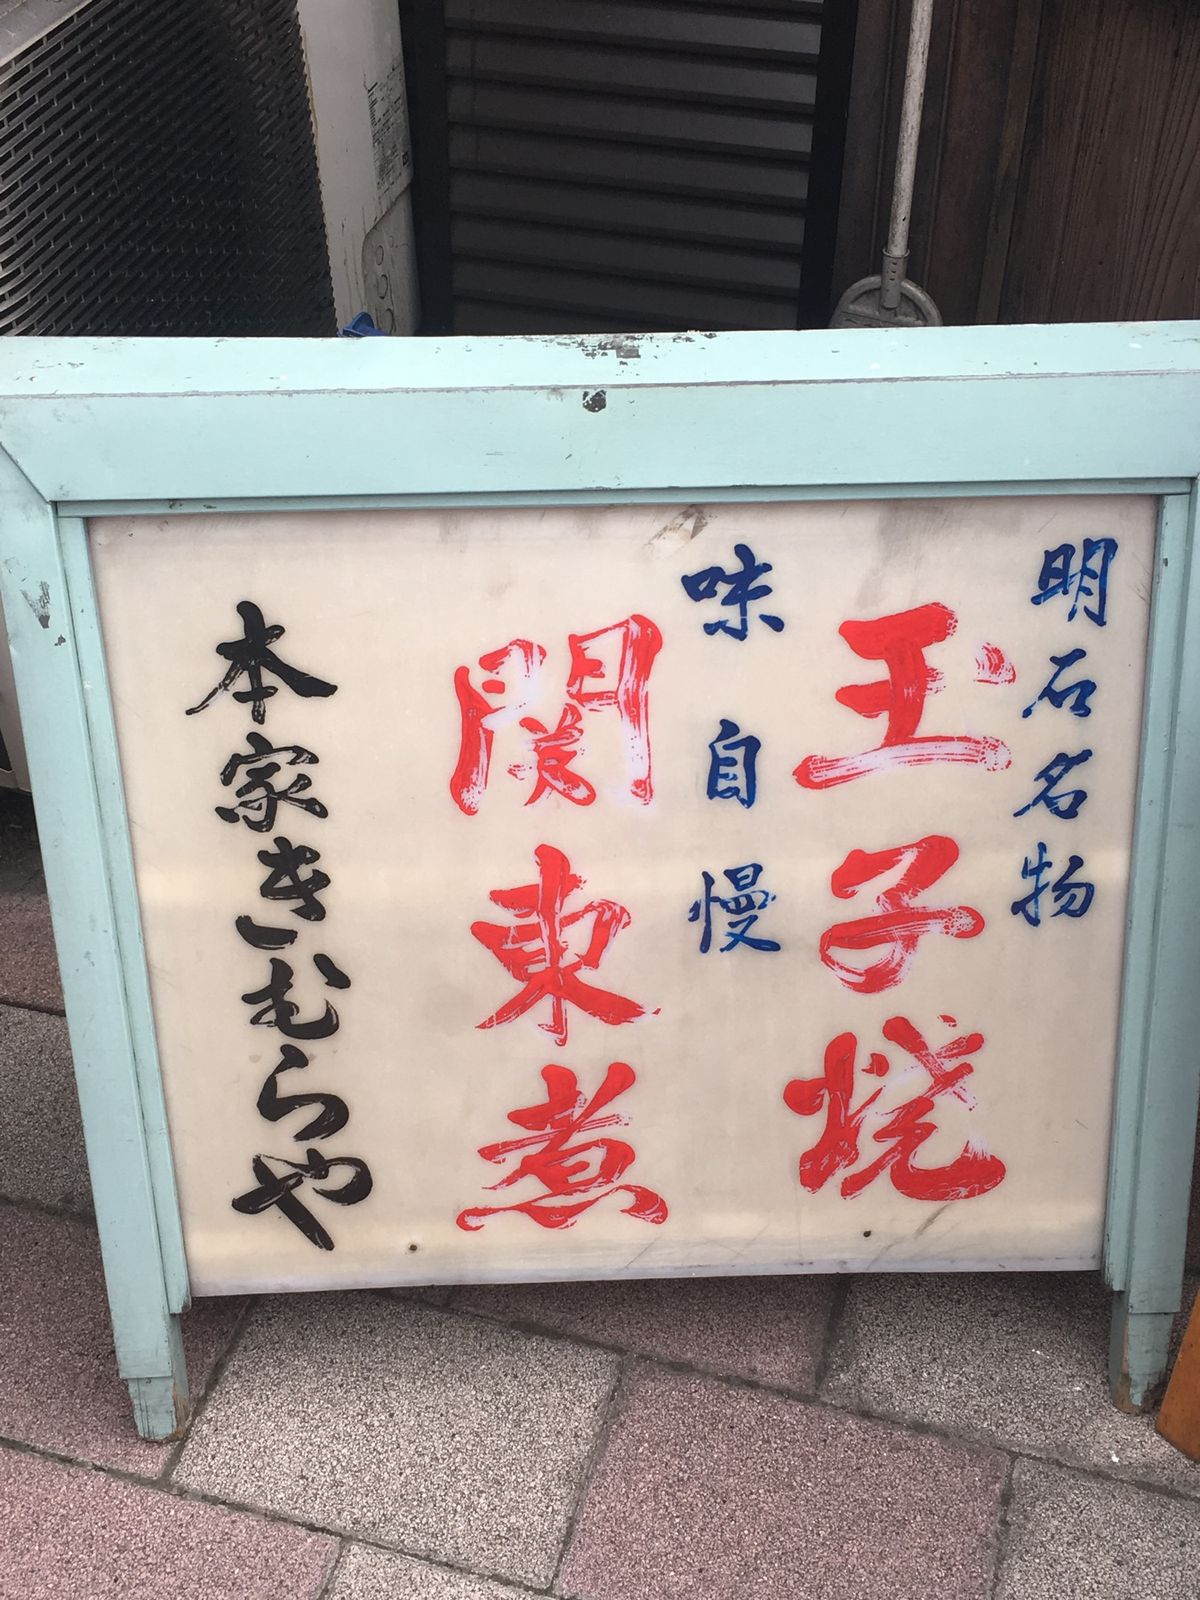 明石名物
玉子焼
味自慢
関東煮
本家きむらや